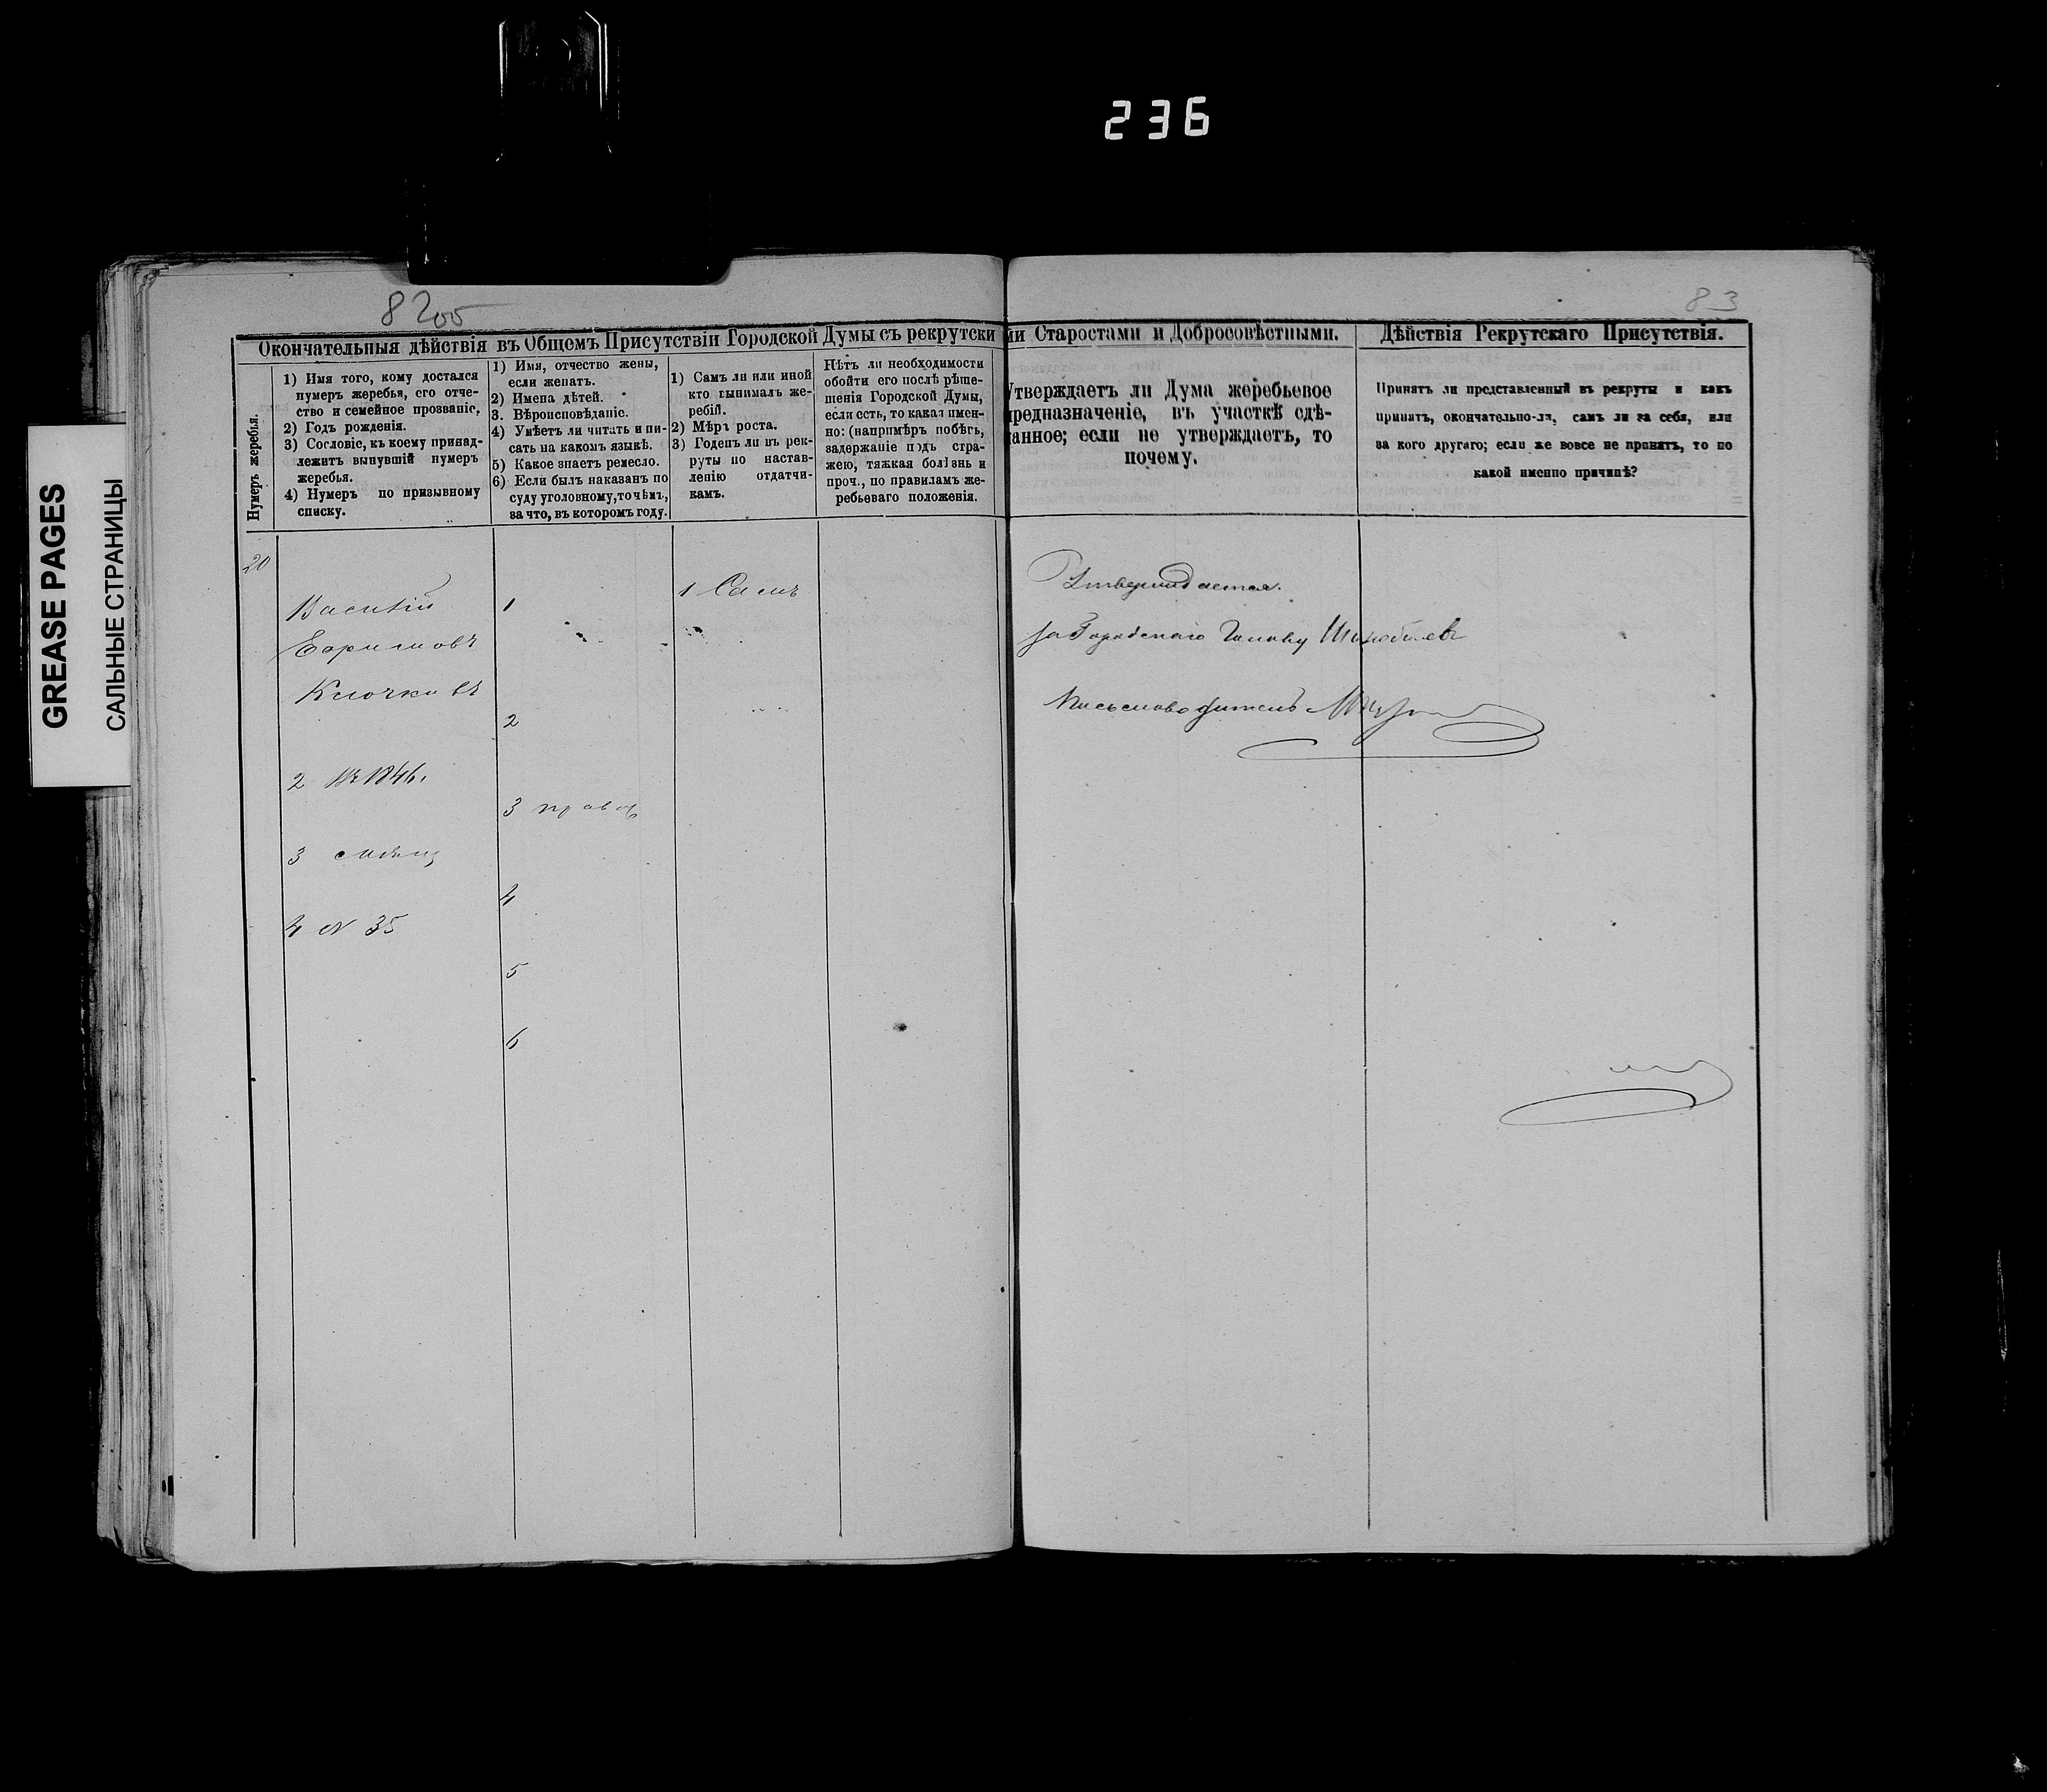 236
GREASE PAGES
САЛЬНЫЕ СТРАНИЦЫ
82 об
83
Окончательныя дѣйствія въ Общемъ Присутствіи Городской Думы съ рекрутски
ми Старостами и Добросовѣстными.
Дѣйствія Рекрутскаго Присутствія.
Нумеръ жеребья.
1) Имя того, кому достался
нумеръ жеребья, его отче-
ство и семейное прозваніе.
2) Годъ рожденія.
3) Сословіе, къ коему принад-
лежитъ вынувшій нумеръ
жеребья.
4) Нумеръ по призывному
списку.
1) Имя, отчество жены,
если женатъ.
2) Имена дѣтей.
3. Вѣроисповѣданіе.
4) Умѣетъ ли читать и пи-
сать на какомъ языкѣ.
5) Какое знаетъ ремесло.
6) Если былъ наказанъ по
суду уголовному, то чѣмъ,
за что, въ которомъ году.
1) Самъ ли или иной
кто вынималъ же-
ребій.
2) Мѣръ роста.
3) Годенъ ли въ рек-
руты по настав-
ленію отдатчи-
камъ.
Нѣтъ ли необходимости
обойти его послѣ рѣше-
шенія Городской Думы,
если есть, то какая имен-
но: (напримѣръ побѣгъ,
задержаніе подъ стра-
жею, тяжкая болѣзнь и
проч., по правиламъ же-
ребьеваго положенія.
Утверждаетъ ли Дума жеребьевое
предназначеніе, въ участкѣ сдѣ-
ланное; если не утверждаетъ, то
почему.
Принятъ ли представленный въ рекруты и какъ
принятъ, окончательно-ли, самъ ли за себя, или
за кого другаго; если же вовсе не принятъ, то по
какой именно причинѣ?
20
Василій
Ефимовъ
Клочковъ
2 Въ 1846.
3 мѣщ
4 № 35
1
2
3 правос
4
5
6
1 Самъ
Утверждается.
за Городскаго Голову
Письмоводитель